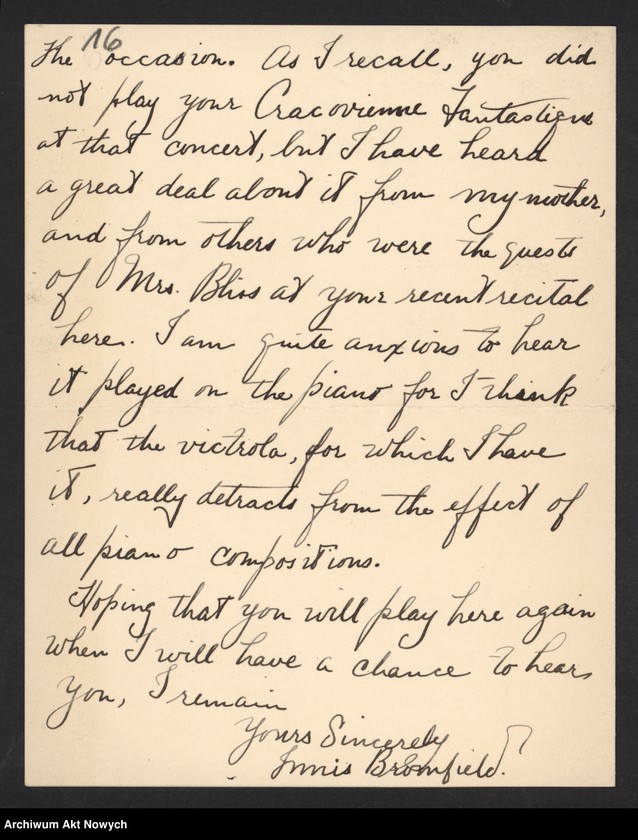 16
the occasion. As I recall, you did
not play your Cracovienne Fantastique
at that concert, but I have heard
a great deal about it from my mother,
and from others who were the guests
of Mrs. Bliss at your recent recital
here. I am quite anxious to hear
it played on the piano for I think
that the victrola, for which I have
it, really detracts from the effect of
all piano compositions.
Hoping that you will play here again
when I will have a chance to hear
you, I remain
Yours Sincerely
Innis Bromfield.
Archiwum Akt Nowych